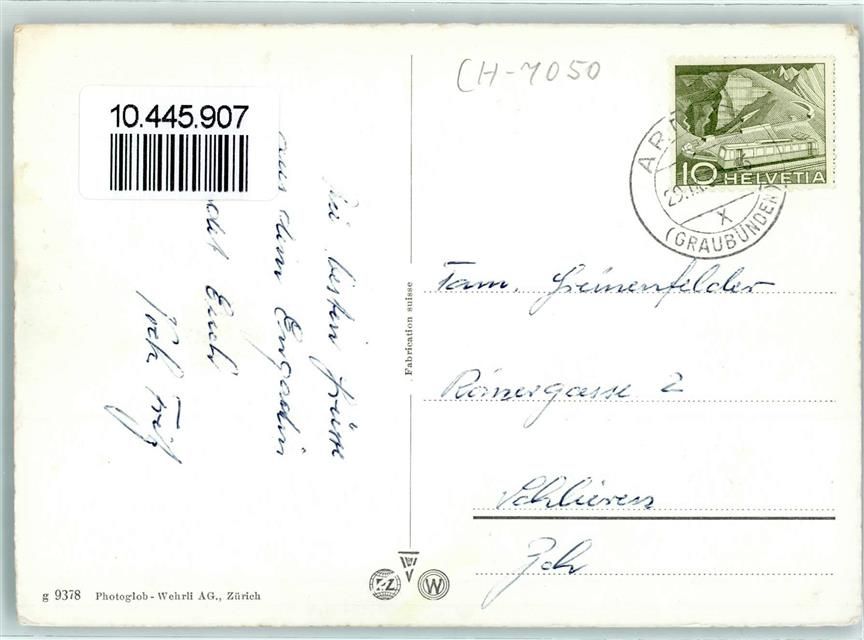 10.445.907
CH-7050
10 HELVETIA
(GRAUBÜNDEN)
X
Die besten Grüsse
aus dem Engadin
Euch
Fabrication suisse
Fam. Greinenfelder
Römergasse 2
Schlieren
Zch
g 9378 Photoglob - Wehrli AG., Zürich
W